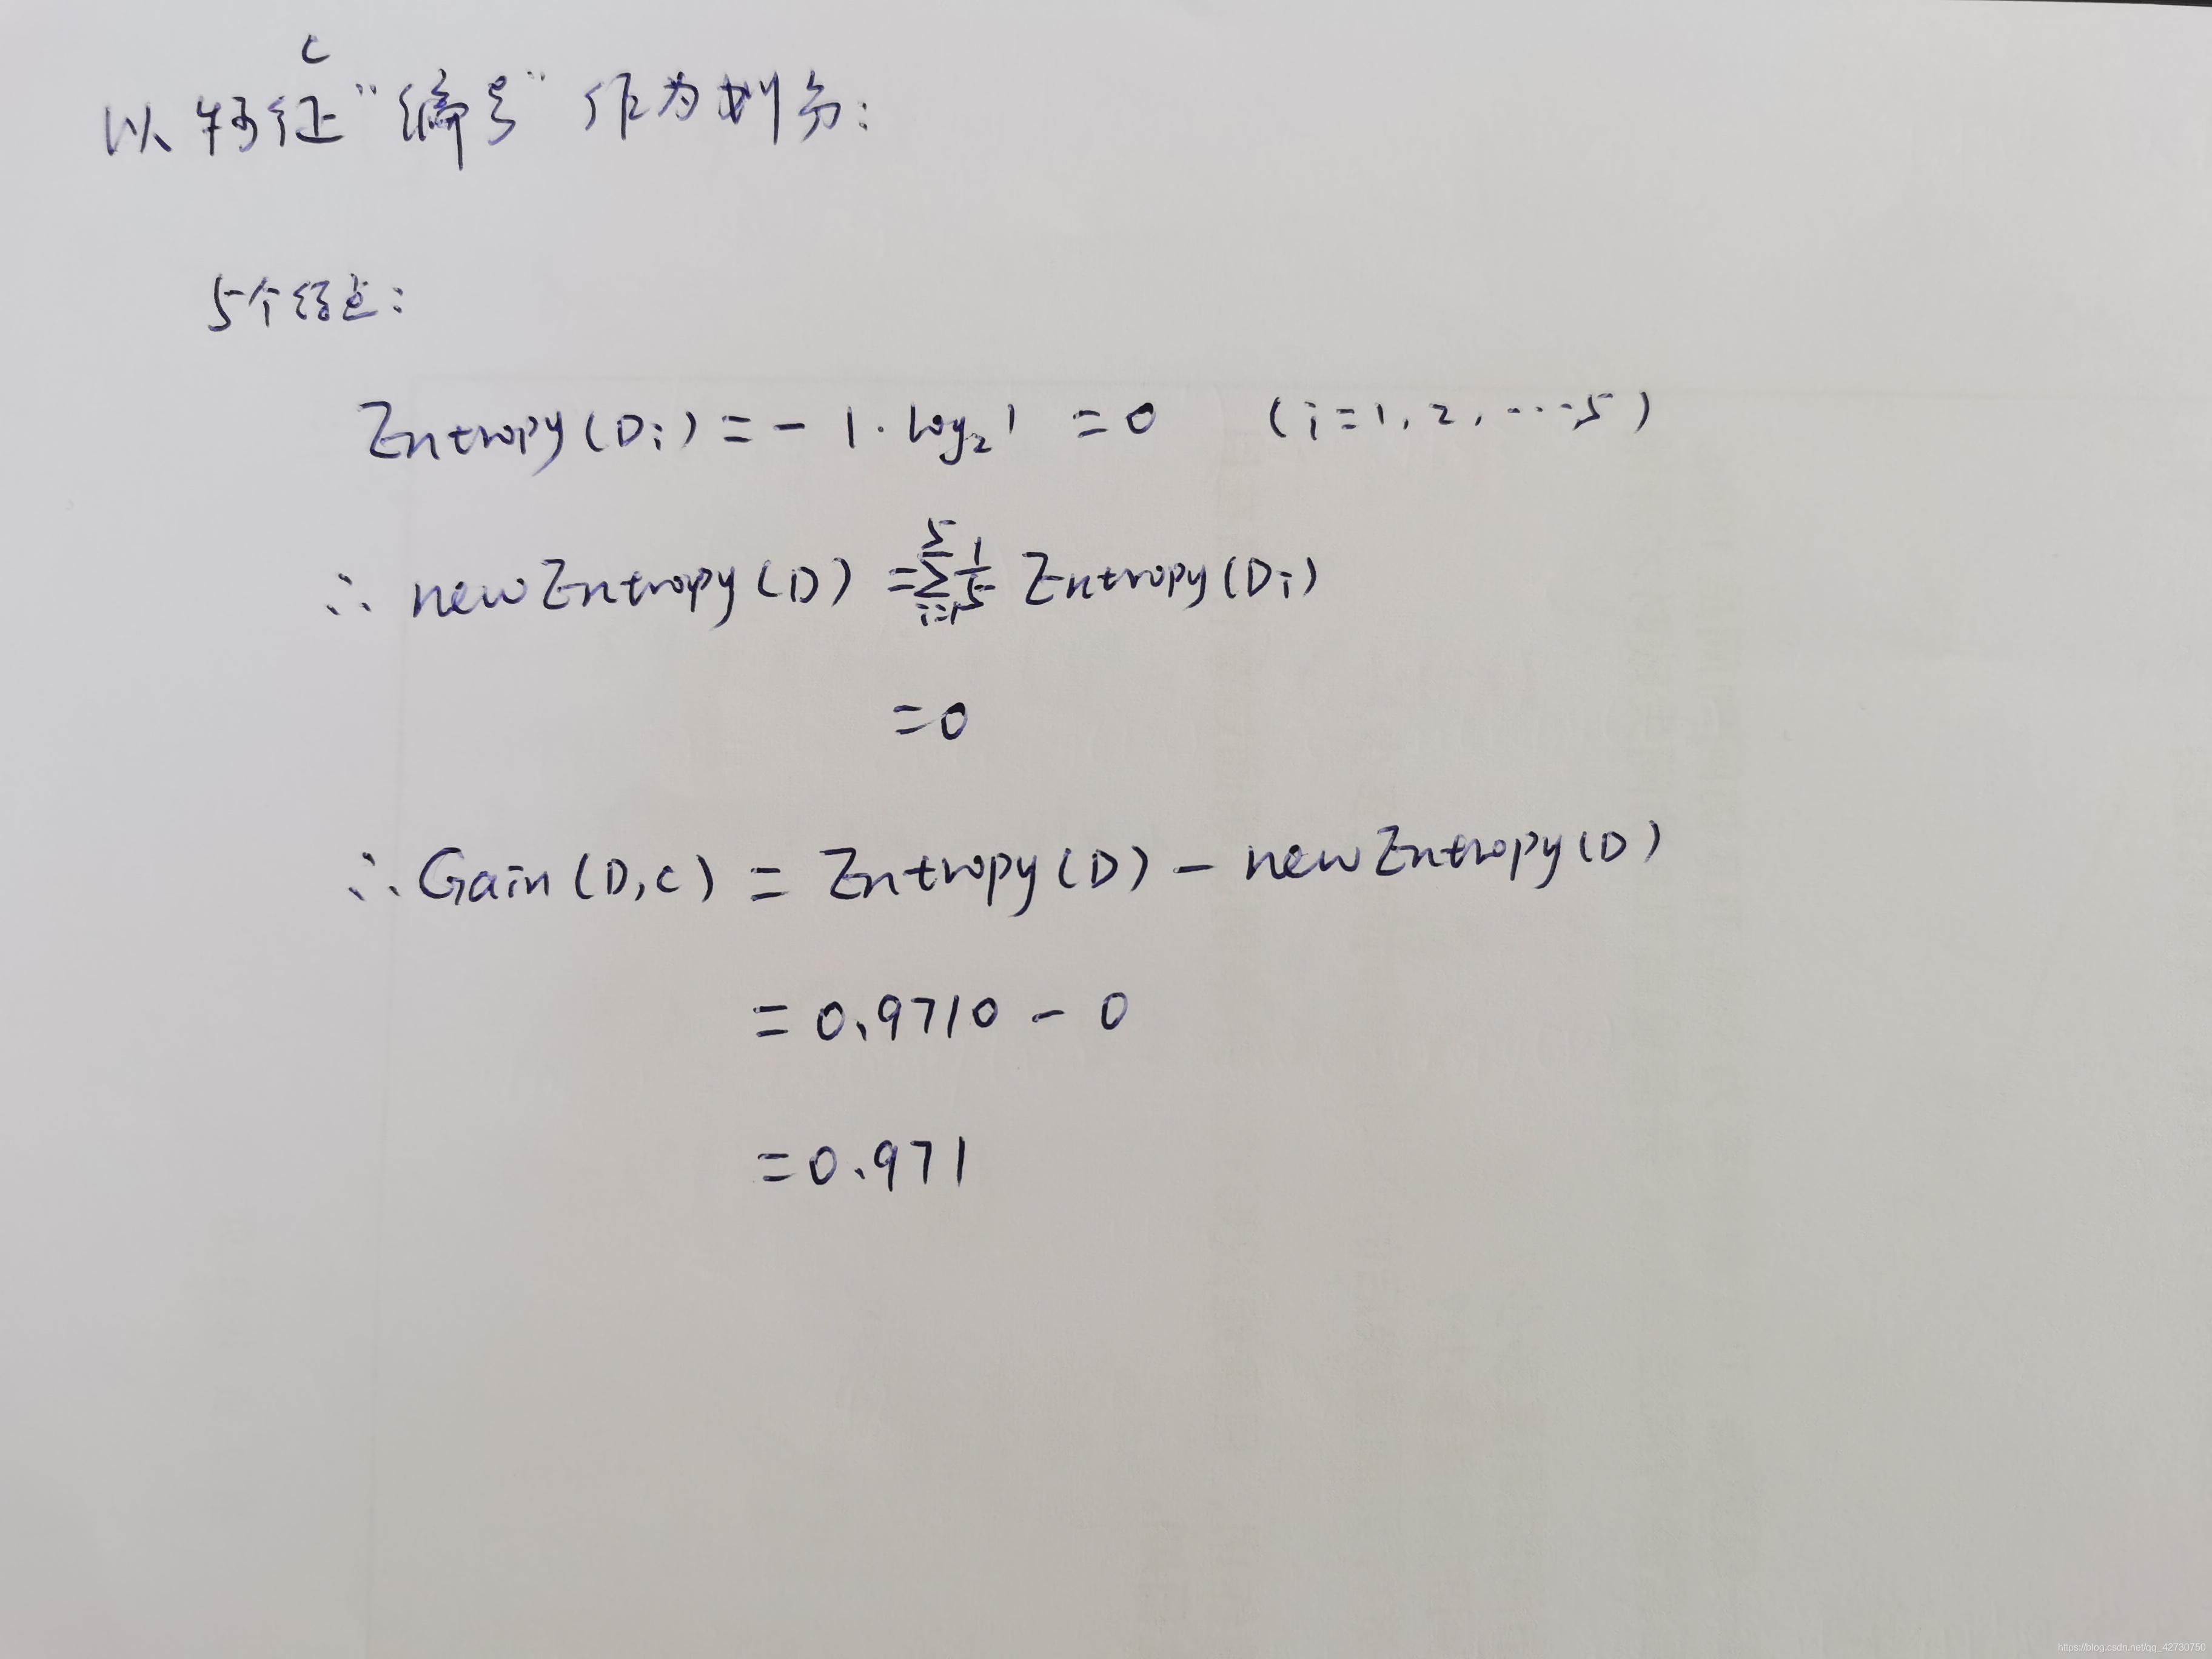 C
以特征“编号”作为划分:
5个结点:
Entropy(Di) = - 1·log₂1 = 0 (i=1, 2, ...5)
∴ newEntropy(D) = ∑_{i=1}^{5} 1/5 Entropy(Di)
=0
∴ Gain(D,C) = Entropy(D) - newEntropy(D)
= 0.9710 - 0
= 0.971
https://blog.csdn.net/qq_42730750